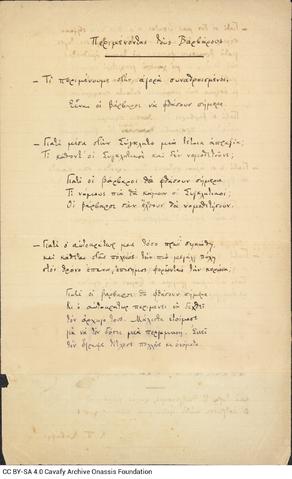 Περιμένοντας τους Βαρβάρους
— Τι περιμένουμε στην αγορά συναθροισμένοι;
Είναι οι βάρβαροι να φθάσουν σήμερα.
— Γιατί μέσα στην Σύγκλητο μιά τέτοια απραξία;
Τι κάθοντ' οι Συγκλητικοί και δεν νομοθετούνε;
Γιατί οι βάρβαροι θα φθάσουν σήμερα.
Τι νόμους πιά θα κάμουν οι Συγκλητικοί;
Οι βάρβαροι σαν έλθουν θα νομοθετήσουν.
— Γιατί ο αυτοκράτωρ μας τόσο πρωί σηκώθη,
και κάθεται στης πόλεως την πιο μεγάλη πύλη
στον θρόνο επάνω, επίσημος, φορώντας την κορώνα;
Γιατί οι βάρβαροι θα φθάσουν σήμερα.
Κι ο αυτοκράτωρ περιμένει να δεχθεί
τον αρχηγό τους. Μάλιστα ετοίμασε
για να τον δώσει μιά περγαμηνή. Εκεί
τον έγραψε τίτλους πολλούς κι ονόματα.
CC BY-SA 4.0 Cavafy Archive Onassis Foundation